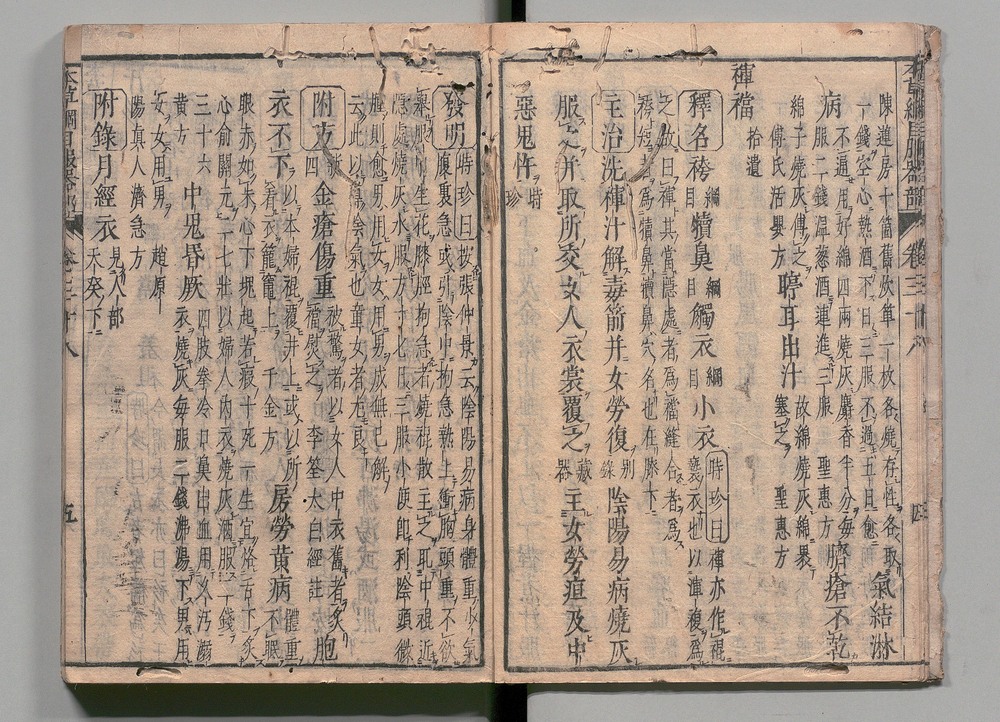 本草綱目服器部　卷三十八　四
陳道房十箇舊炊箄一枚各燒存性各取
一錢空心熱酒下一日三服不過五日愈
氣結淋
病
不遍用好綿四兩燒灰麝香半分每
服二錢溫葱酒連進三服　聖惠方
臍瘡不乾
綿子燒灰傅之
傅氏活嬰方
聤耳出汁
故綿燒灰綿裹
塞之　聖惠方
褌襠　拾遺
釋名袴綱目犢鼻綱目觸衣綱目小衣
時珍曰褌亦作裩
褻衣也以渾複為
之故曰褌其當隱處者為襠縫合者為
袴短者為犢鼻犢鼻穴名也在膝下
主治洗褌汁解毒箭并女勞復別錄陰陽易病燒灰
服之并取所交女人衣裳覆之藏器主女勞疸及中
惡鬼忤時珍
發明
時珍曰按張仲景云陰陽易病身體重少氣
腹裏急或引陰中拘急熱上衝胸頭重不欲
舉眼中生花膝脛拘急者燒裩散主之取中裩近
隱處燒灰水服方寸匕日三服小便即利陰頭微
腫則愈男用女女用男成無已解
云此以導陰氣也童女者尤良
附方新四金瘡傷重
被驚者以女人中衣舊者炙
襠熨之　李筌太白經註
胞
衣不下
以本婦裩覆井上或以所
着衣籠竈上　千金方
房勞黃病
體重
不眠
眼赤如朱心下塊起若瘕十死一生宜烙舌下灸
心俞關元二七壯以婦人內衣燒灰酒服二錢
三十六
黃方
中鬼昏厥
四肢拳冷口鼻出血用久污溺
衣燒灰每服二錢沸湯下男用
女女用男　趙原
陽真人濟急方
附錄月經衣
見人部
天癸下
本草綱目服器部　卷三十八　五